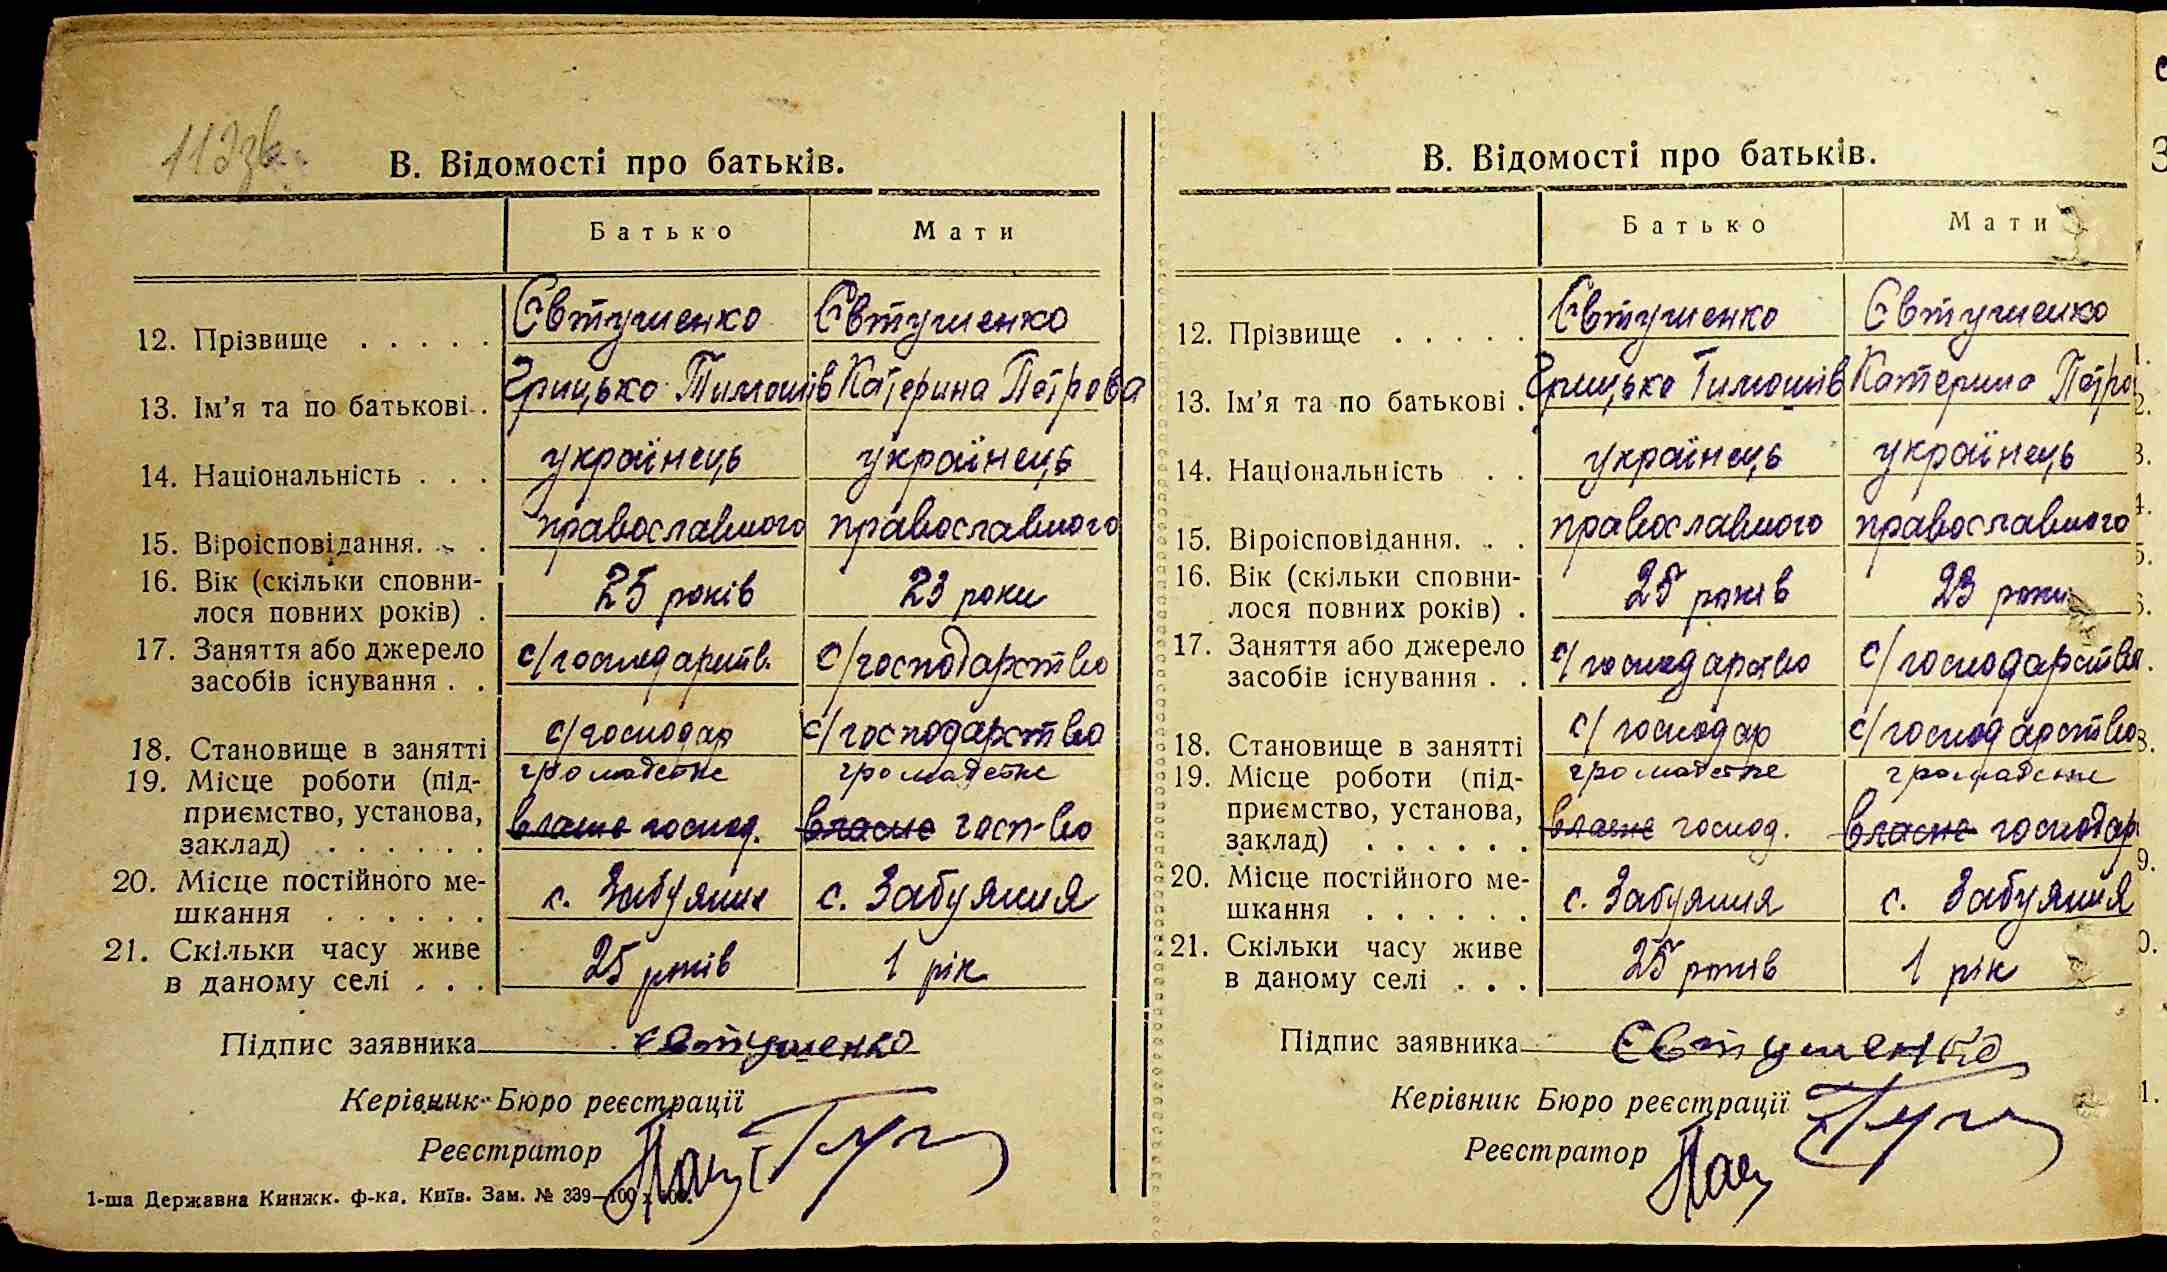 113зв.
В. Відомості про батьків.
Батько Мати
12. Прізвище . . . . . Євтушенко Євтушенко
13. Ім'я та по батькові . . Грицько Тимошів Катерина Петрова
14. Національність . . . українець українець
15. Віроісповідання. . . православного православного
16. Вік (скільки сповни-
лося повних років) . 25 років 23 роки
17. Заняття або джерело
засобів існування . . с/господарств. с/господарство
18. Становище в занятті с/господар с/господарство
19. Місце роботи (під- громадське громадське
приємство, установа,
заклад) . . . . . . власне господ. власне госп-во
20. Місце постійного ме-
шкання . . . . . . с. Забуяння с. Забуяння
21. Скільки часу живе
в даному селі . . . 25 років 1 рік
Підпис заявника Євтушенко
Керівник Бюро реєстрації
Реєстратор
1-ша Державна Кинжк. ф-ка. Київ. Зам. № 339—100
В. Відомості про батьків.
Батько Мати
12. Прізвище . . . . . Євтушенко Євтушенко
13. Ім'я та по батькові . Грицько Тимошів Катерина Петро
14. Національність . . українець українець
15. Віроісповідання. . . православного православного
16. Вік (скільки сповни-
лося повних років) . 25 років 23 роки
17. Заняття або джерело
засобів існування . . с/господарство с/господарство
18. Становище в занятті с/господар с/господарство
19. Місце роботи (під- громадське громадське
приємство, установа,
заклад) . . . . . . власне господ. власне господар
20. Місце постійного ме-
шкання . . . . . . с. Забуяння с. Забуяння
21. Скільки часу живе
в даному селі . . . 25 років 1 рік
Підпис заявника Євтушенко
Керівник Бюро реєстрації
Реєстратор